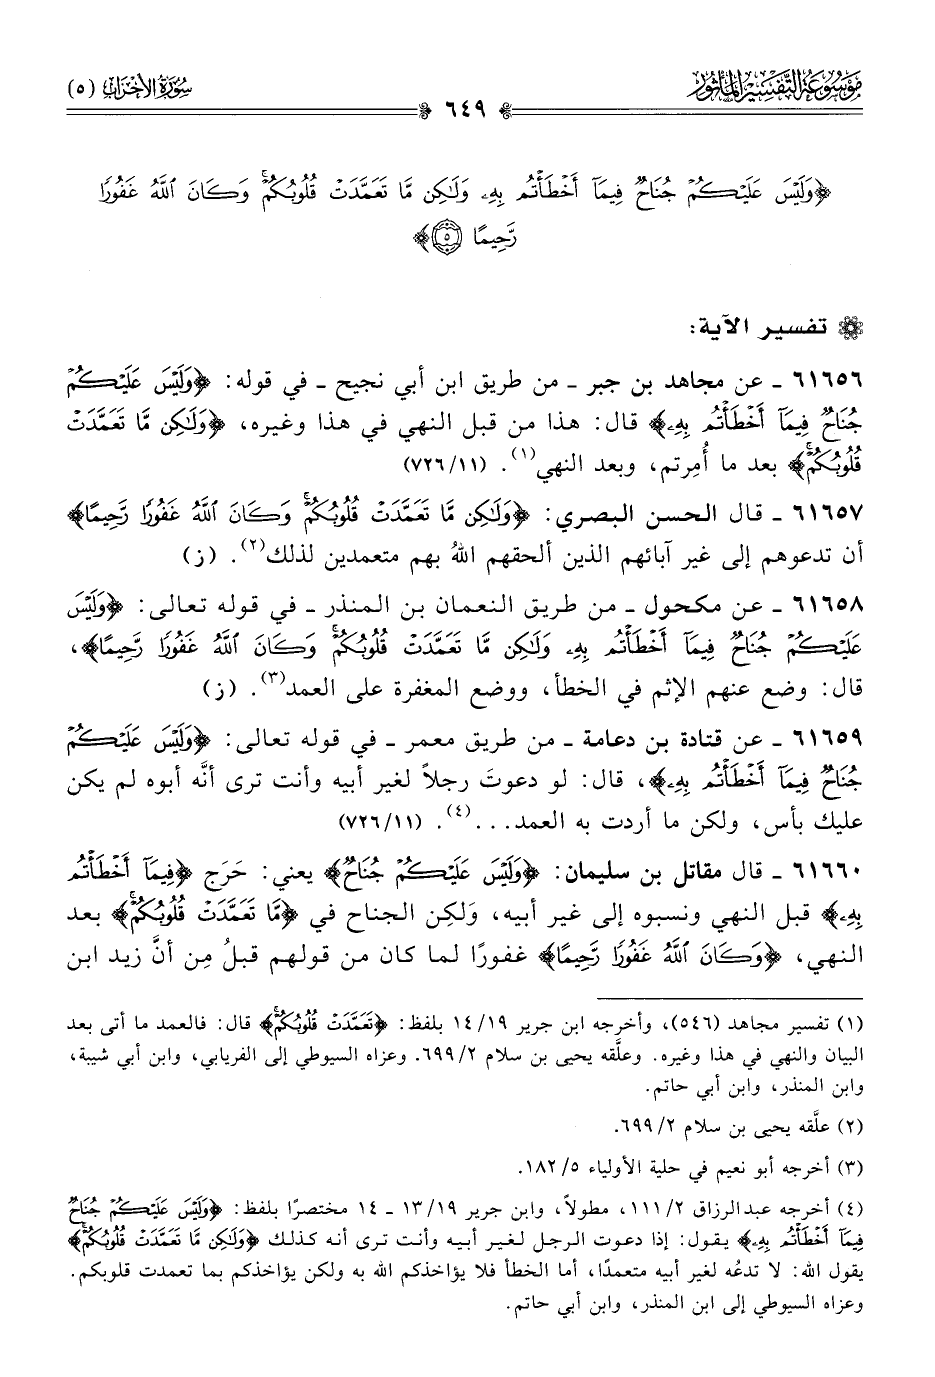 موسوعة التفسير المأثور
سورة الأحزاب (٥)
٦٤٩
﴿وَلَيْسَ عَلَيْكُمْ جُنَاحٌ فِيمَآ أَخْطَأْتُم بِهِۦ وَلَٰكِن مَّا تَعَمَّدَتْ قُلُوبُكُمْ ۚ وَكَانَ ٱللَّهُ غَفُورًا
رَّحِيمًا ٥﴾
تفسير الآية:
٦١٦٥٦ ـ عن مجاهد بن جبر ـ من طريق ابن أبي نجيح ـ في قوله: ﴿وَلَيْسَ عَلَيْكُمْ
جُنَاحٌ فِيمَآ أَخْطَأْتُم بِهِۦ﴾ قال: هذا من قبل النهي في هذا وغيره، ﴿وَلَٰكِن مَّا تَعَمَّدَتْ
قُلُوبُكُمْ ۚ﴾ بعد ما أُمِرتم، وبعد النهي(١). (١١/ ٧٢٦)
٦١٦٥٧ ـ قال الحسن البصري: ﴿وَلَٰكِن مَّا تَعَمَّدَتْ قُلُوبُكُمْ ۚ وَكَانَ ٱللَّهُ غَفُورًا رَّحِيمًا﴾
أن تدعوهم إلى غير آبائهم الذين ألحقهم اللهُ بهم متعمدين لذلك(٢). (ز)
٦١٦٥٨ ـ عن مكحول ـ من طريق النعمان بن المنذر ـ في قوله تعالى: ﴿وَلَيْسَ
عَلَيْكُمْ جُنَاحٌ فِيمَآ أَخْطَأْتُم بِهِۦ وَلَٰكِن مَّا تَعَمَّدَتْ قُلُوبُكُمْ ۚ وَكَانَ ٱللَّهُ غَفُورًا رَّحِيمًا﴾،
قال: وضع عنهم الإثم في الخطأ، ووضع المغفرة على العمد(٣). (ز)
٦١٦٥٩ ـ عن قتادة بن دعامة ـ من طريق معمر ـ في قوله تعالى: ﴿وَلَيْسَ عَلَيْكُمْ
جُنَاحٌ فِيمَآ أَخْطَأْتُم بِهِۦ﴾، قال: لو دعوتَ رجلاً لغير أبيه وأنت ترى أنَّه أبوه لم يكن
عليك بأس، ولكن ما أردت به العمد...(٤). (١١/ ٧٢٦)
٦١٦٦٠ ـ قال مقاتل بن سليمان: ﴿وَلَيْسَ عَلَيْكُمْ جُنَاحٌ﴾ يعني: حَرَج ﴿فِيمَآ أَخْطَأْتُم
بِهِۦ﴾ قبل النهي ونسبوه إلى غير أبيه، وَلكِن الجناح في ﴿مَّا تَعَمَّدَتْ قُلُوبُكُمْ ۚ﴾ بعد
النهي، ﴿وَكَانَ ٱللَّهُ غَفُورًا رَّحِيمًا﴾ غفورًا لما كان من قولهم قبلُ مِن أنَّ زيد ابن
(١) تفسير مجاهد (٥٤٦)، وأخرجه ابن جرير ١٩/ ١٤ بلفظ: ﴿تَعَمَّدَتْ قُلُوبُكُمْ ۚ﴾ قال: فالعمد ما أتى بعد
البيان والنهي في هذا وغيره. وعلَّقه يحيى بن سلام ٢/ ٦٩٩. وعزاه السيوطي إلى الفريابي، وابن أبي شيبة،
وابن المنذر، وابن أبي حاتم.
(٢) علَّقه يحيى بن سلام ٢/ ٦٩٩.
(٣) أخرجه أبو نعيم في حلية الأولياء ٥/ ١٨٢.
(٤) أخرجه عبدالرزاق ٢/ ١١١، مطولاً، وابن جرير ١٩/ ١٣ ـ ١٤ مختصرًا بلفظ: ﴿وَلَيْسَ عَلَيْكُمْ جُنَاحٌ
فِيمَآ أَخْطَأْتُم بِهِۦ﴾ يقول: إذا دعوت الرجل لغير أبيه وأنت ترى أنه كذلك ﴿وَلَٰكِن مَّا تَعَمَّدَتْ قُلُوبُكُمْ ۚ﴾
يقول الله: لا تدعُه لغير أبيه متعمدًا، أما الخطأ فلا يؤاخذكم الله به ولكن يؤاخذكم بما تعمدت قلوبكم.
وعزاه السيوطي إلى ابن المنذر، وابن أبي حاتم.